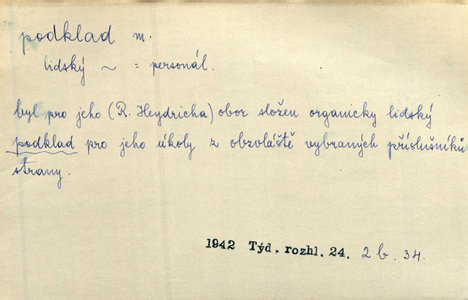 podklad m.
lidský ~ = personál.
byl pro jeho (R. Heydricha) obor složen organicky lidský
podklad pro jeho úkoly z obzvláště vybraných příslušníků
strany.
1942 Týd. rozhl. 24. 2 b. 34.